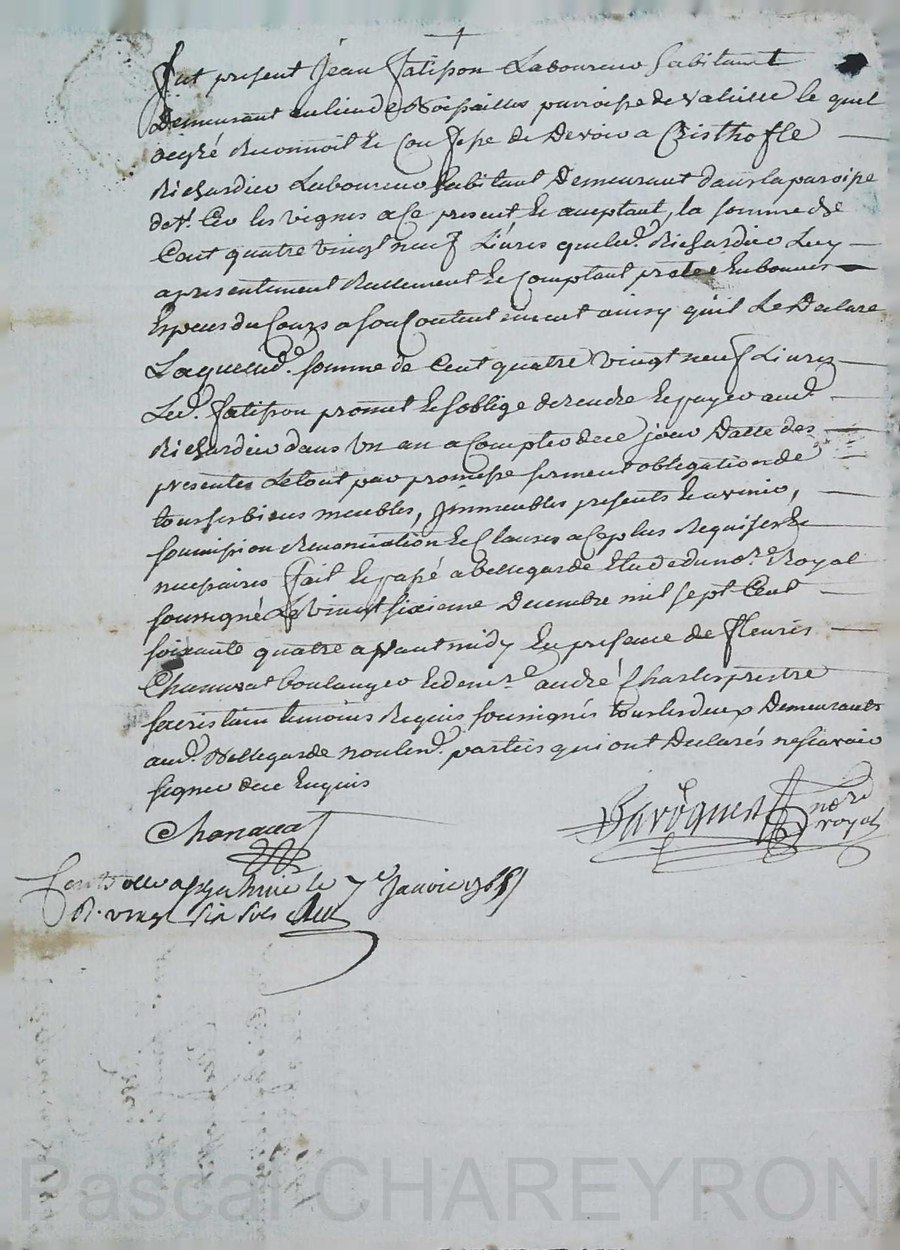 Fut present Jean Jalipon Laboureur habitant
Demeurant au lieu de parroisse de le quel
degré Reconnoit Et Confesse de Devoir a Cristhofle
Richardier Laboureur habitant Demeurant dans la paroisse
de st. Cir les vignes a Ce present Et acceptant, la somme de
Cent quatre vingt neuf Livres que led. Richardier Luy
a presentement Reellement Et Comptant preté En bonnes
Especes du Cours a son Contentement ainsy qu'il Le Declare
Laquelle d. somme de Cent quatre vingt neuf Livres
Led. Jalipon promet Et soblige de rendre Et payer aud.
Richardier dans Un an a Compter de ce jour Datte des
presentes Le tout par promesse serment obligation de
tous ses biens meubles, jmmeubles presents Et avenir,
soumision Renonciation Et Clauses a ce plus Requises Et
necessaires fait Et passé a bellegarde Etude du nore. Royal
soussigné Le vingt sixieme Decembre mil sept Cent
soixante quatre avant midy En presence de fleuris
Chanavat boulanger Et de mre. andré Charles prestre
sacristain temoins Requis soussignés tous les deux Demeurants
aud. Bellegarde non led. parties qui ont Declarés ne scavoir
signer de ce Enquis
Chanavat
nore
royal
Controllé a le 7e Janvier 1765
R. vingt six sols
Pascal CHAREYRON